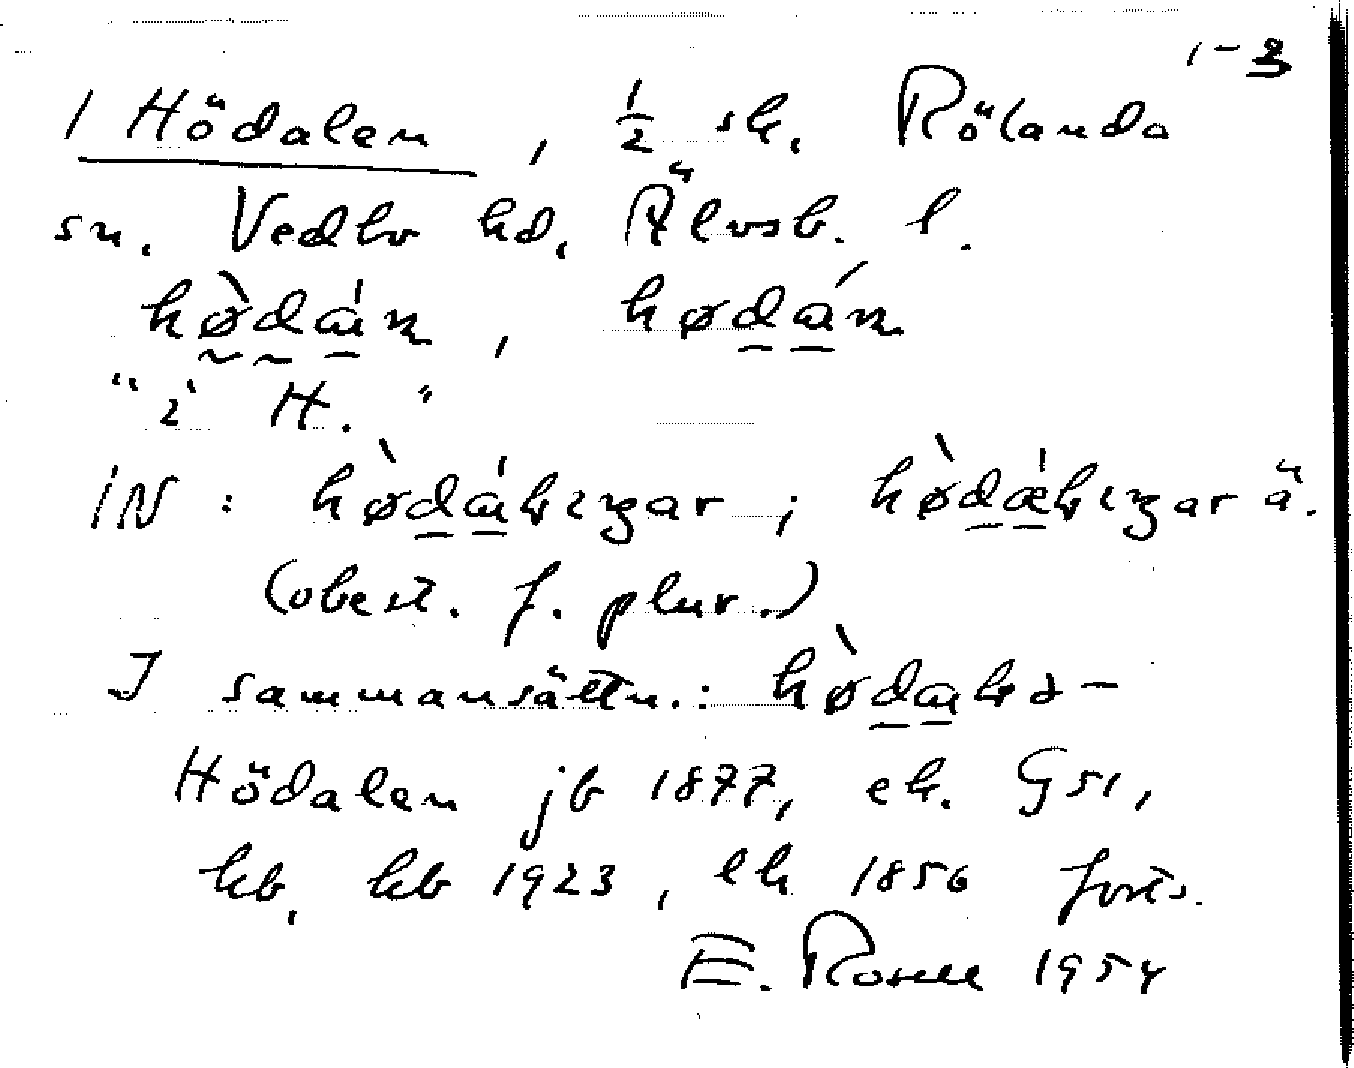 1-3
1 Hödalen, ½ sk. Rölanda
sn. Vedbo hd. Älvsb. l.
hø̀dá̀n, hødán
"i H."
IN: hø̀dáɫıŋar; hø̀dǽɫıŋar ä.
(obest. f. plur.)
I sammansättn.: hø̀daɫə-
Hödalen jb 1877, ek. G51,
hb, kb 1923, ek 1856 forts.
E. Rosell 1954